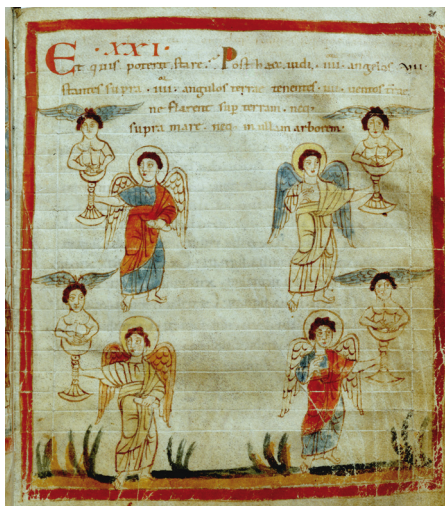 ·XXI·
Et quis poterit stare. Post haec uidi ·IIII· angelos
stantes supra ·IIII· angulos terrae tenentes ·IIII· uentos trae
ne flarent sup terram neq·
supra mare· neq· in ullam arborem·